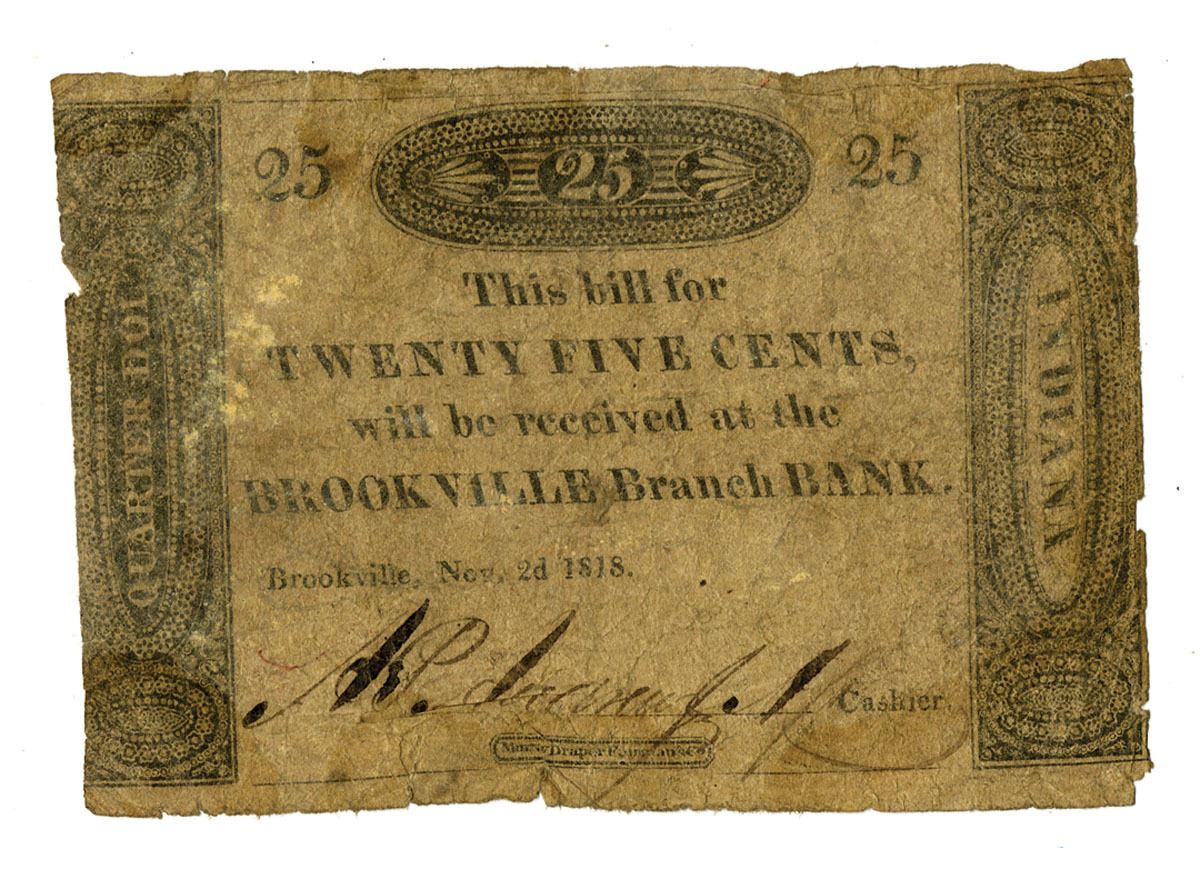 25 25 25
This bill for
TWENTY FIVE CENTS,
will be received at the
BROOKVILLE Branch BANK.
Brookville, Nov. 2d 1818.
Cashier.
Draper
QUARTER DOL
INDIANA